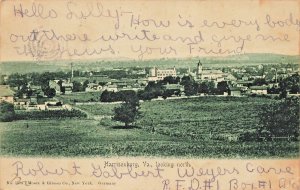 Hello Sally - How is every body
out there write and give me
all news Your Friend
Harrisonburg, Va., looking north.
Moore & Gibson Co., New York, Germany
Robert Sabbert Weyers Cave
R.F.D. #1 Box #1